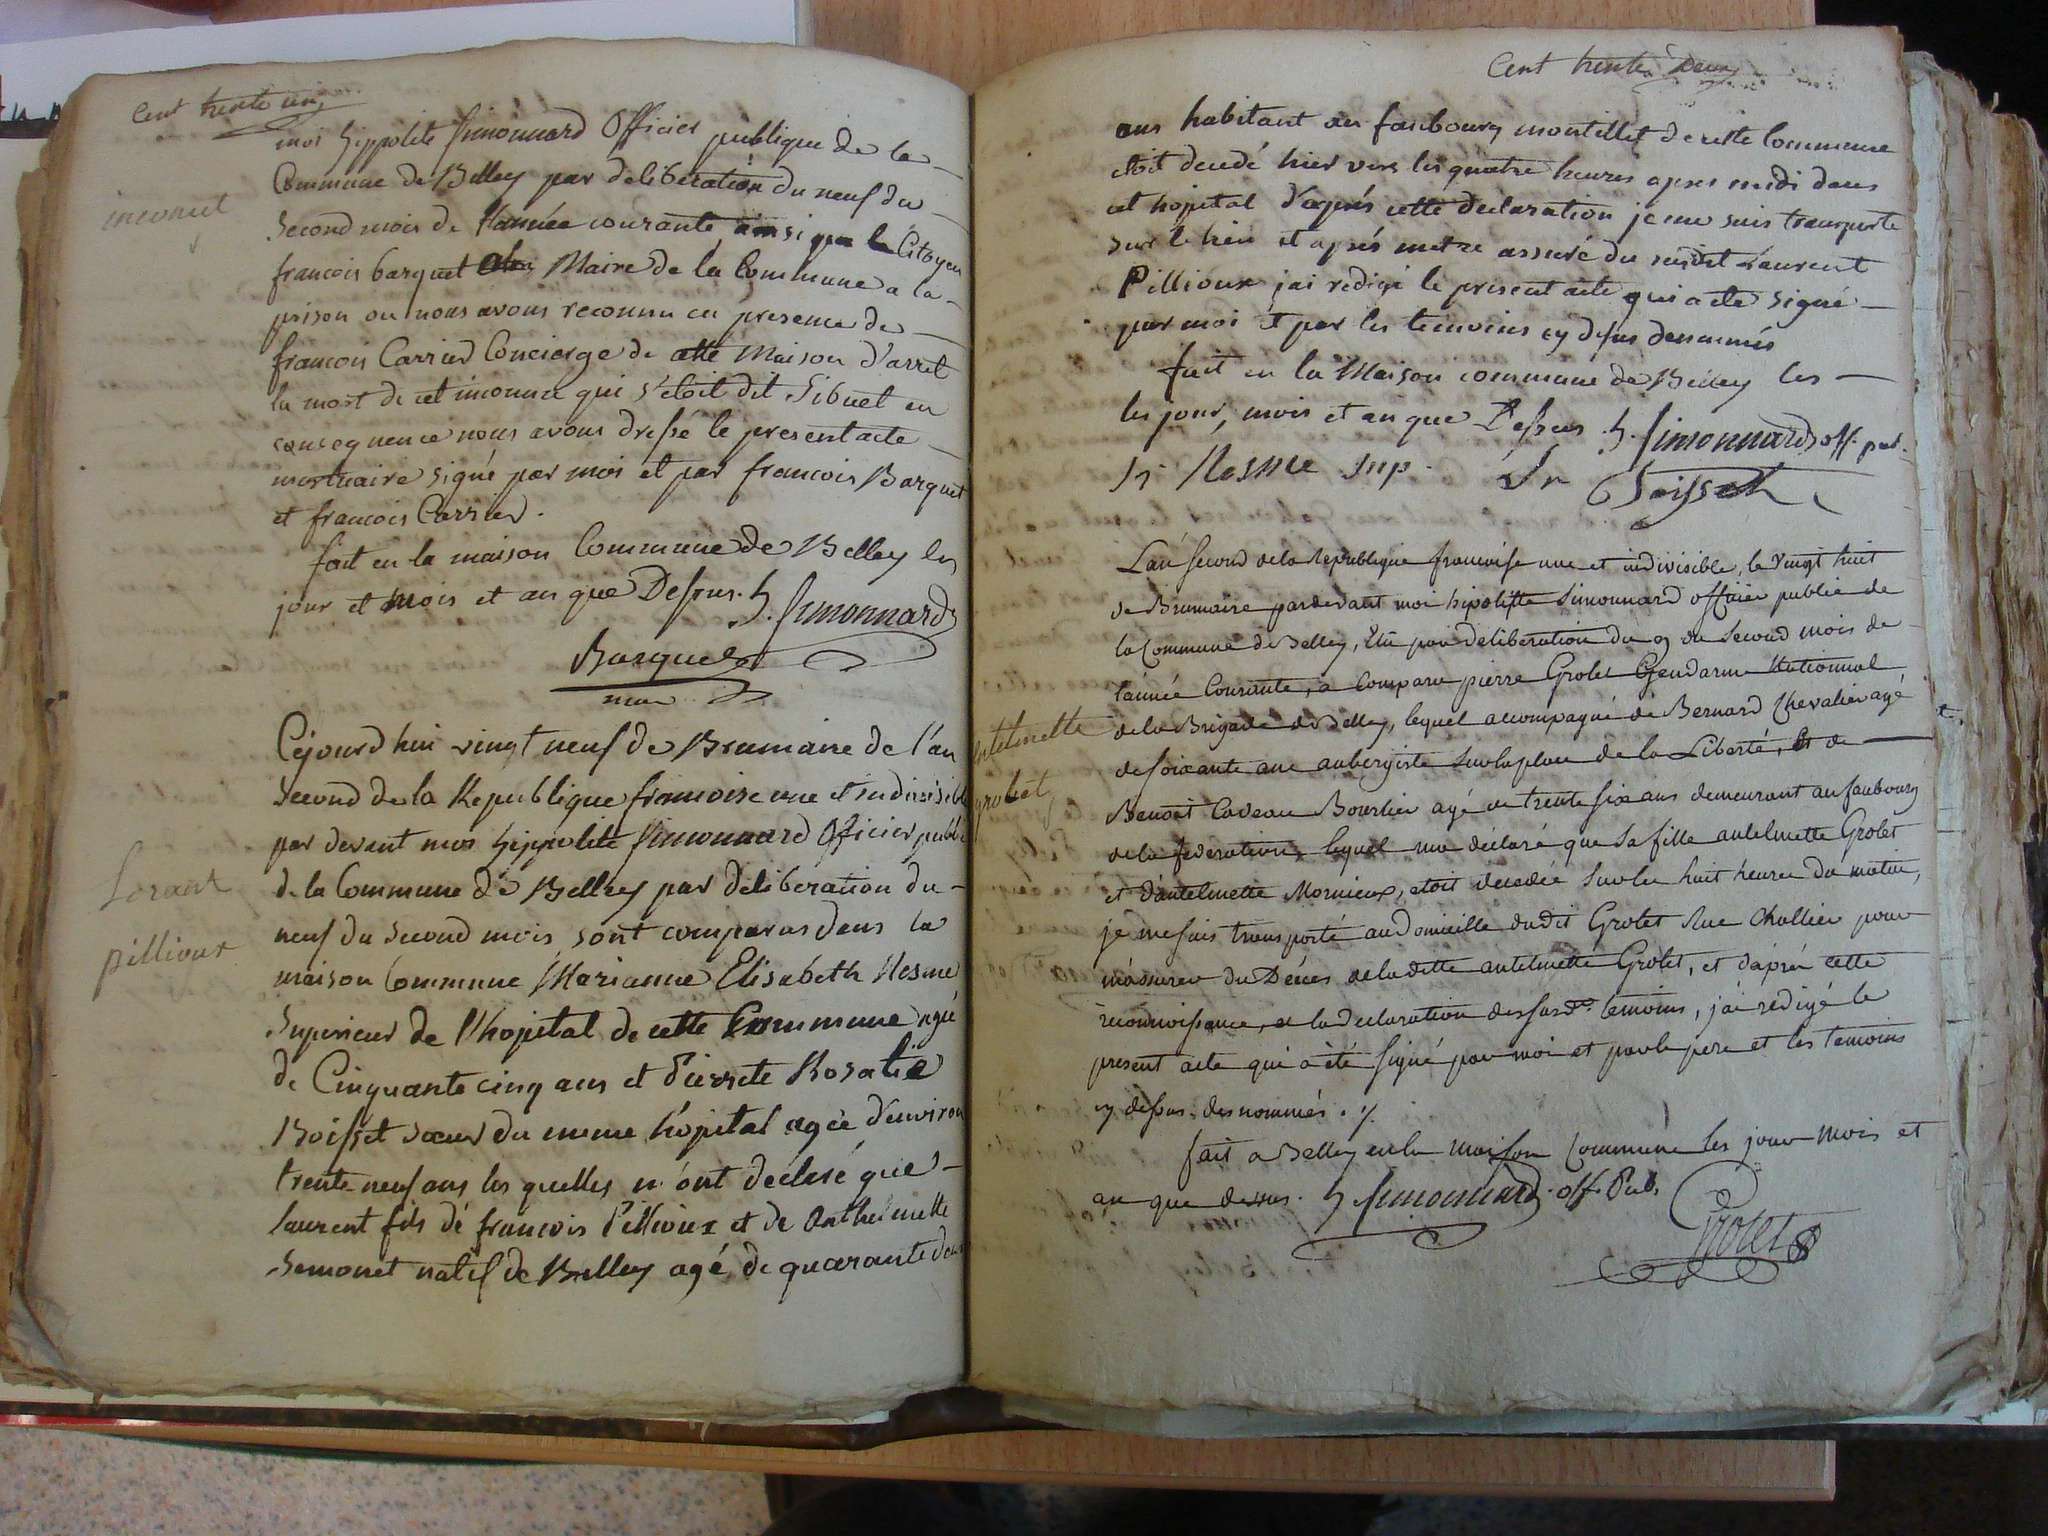 Cent trente un
moi hippolite Simonnard Officier publique de la
Commune de Belley par deliberation du neuf du
Second mois de l'année courante ainsi que le Citoyen
francois barquet Maire de la Commune a la
prison ou nous avons reconnu en presence de
francois Carrier Concierge de cette Maison d'arret
la mort de cet inconnu qui s'etoit dit Sibuet en
consequence nous avons dressé le present acte
mortuaire signé par moi et par francois Barquet
et francois Carrier.
fait en la maison Commune de Belley les
jour et Mois et an que Dessus. h. Simonnard
Barquet
inconut
Cejourd'hui vingt neuf de Brumaire de l'an
second de la Republique francoise une et indivisible
par devant moi hippolite Simonnard Officier public
de la Commune de Belley par deliberation du
neuf du second mois sont comparus dans la
maison Commune Marianne Elisabeth Nesme
Superieur de l'hopital de cette Commune agée
de Cinquante cinq ans et Pierrete Rosalie
Boisset soeur du meme hopital agée d'environ
trente neuf ans les quelles m'ont declaré que
laurent fils de francois Pillioux et de Anthelmette
Semonet natif de Belley agé de quarante deux
Lorant
pillioux
Cent trente Deux
ans habitant au faubourg montillet de cette Commune
etoit decedé hier vers les quatre heures apres midi dans
cet hopital d'après cette declaration je me suis transporte
sur le lieu et après metre assuré du susdit Laurent
Pillioux j'ai redigé le present acte qui a ete signé
par moi et par les temoins cy dessus denommés
fait en la Maison commune de Belley les
les jour, mois et an que Dessus h. Simonnard off. pub.
Nesme Sup. Sr Boisset
L'an second de la Republique francoise une et indivisible, le vingt huit
de Brumaire pardevant moi hipolitte Simonnard officier public de
la Commune de Belley, Elu par deliberation du 9 du Second mois de
l'année Courante, a comparu pierre Grolet Gendarme Nationnal
de la Brigade de Belley, lequel accompagné de Bernard Chevalier agé
de soixante ans aubergiste sur la place de la Liberté, et de
Benoit Caveau Bourlier agé de trente six ans demeurant au faubourg
de la federation, lequel m'a déclaré que sa fille antelmette Grolet
et d'antelmette Mornieux, etoit decedée sur les huit heures du matin,
je me suis transporté au Domicille dudit Grolet Rue Challier pour
m'assurer du Décès de la ditte antelmette Grolet, et d'après cette
reconnoissance, et la declaration des susdts temoins, j'ai redigé le
present acte qui a été signé par moi et par le pere et les temoins
cy dessus denommés.
fait a Belley en la Maison Commune les jour Mois et
an que dessus. h Simonnard. off. Pub.
Grolet
antelmette
grolet